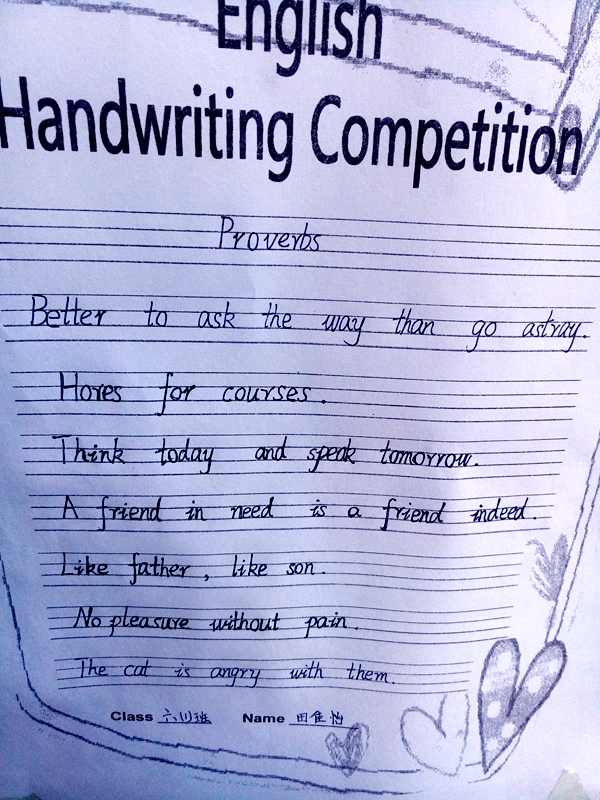 English
Handwriting Competition
Proverbs
Better to ask the way than go astray.
Hores for courses.
Think today and speak tomorrow.
A friend in need is a friend indeed.
Like father, like son.
No pleasure without pain.
The cat is angry with them.
Class 六(1)班 Name 田佳怡